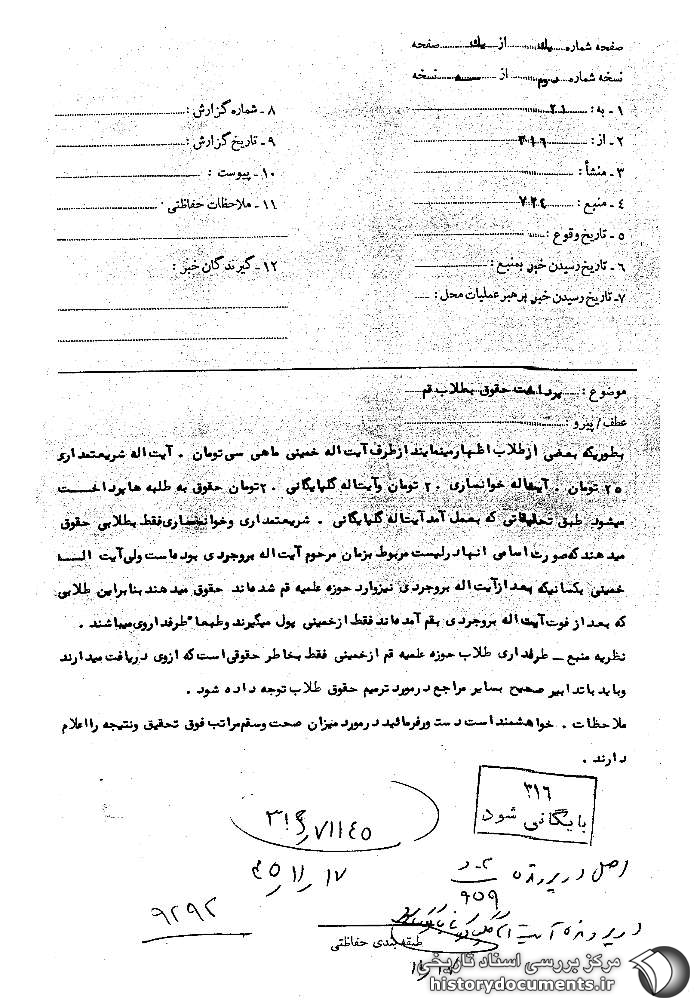 صفحه شماره یك از یك صفحه
نسخه شماره دوم از سه نسخه
۱ ـ به : ۲۱
۲ ـ از : ۳۱۶
۳ ـ منشأ :
۴ ـ منبع : ۷۲۴
۵ ـ تاریخ وقوع :
۶ ـ تاریخ رسیدن خبر بمنبع :
۷ـ تاریخ رسیدن خبر برهبر عملیات محل :
۸ ـ شماره گزارش :
۹ ـ تاریخ گزارش :
۱۰ ـ پیوست :
۱۱ ـ ملاحظات حفاظتی :
۱۲ ـ گیرندگان خبر :
موضوع : پرداخت حقوق بطلاب قم
عطف / پیرو :
بطوریکه بعضی از طلاب اظهارمینمایند از طرف آیت اله خمینی ماهی سی تومان . آیت اله شریعتمداری
۲۵ تومان . آیت اله خوانساری ۲۰ تومان و آیت اله گلپایگانی ۲۰ تومان حقوق به طلبه ها پرداخت
میشود طبق تحقیقاتی که بعمل آمد آیت اله گلپایگانی . شریعتمداری و خوانساری فقط بطلابی حقوق
میدهند که صورت اسامی آنها در لیست مربوط بزمان مرحوم آیت اله بروجردی بوده است ولی آیت اله
خمینی بکسانیکه بعد از آیت اله بروجردی نیز وارد حوزه علمیه قم شده اند حقوق میدهند بنابراین طلابی
که بعد از فوت آیت اله بروجردی بقم آمده اند فقط از خمینی پول میگیرند و طبعا" طرفدار وی میباشند .
نظریه منبع ـ طرفداری طلاب حوزه علمیه قم از خمینی فقط بخاطر حقوقی است که از وی دریافت میدارند
و باید با تدابیر صحیح بسایر مراجع در مورد ترمیم حقوق طلاب توجه داده شود .
ملاحظات . خواهشمند است دستور فرمائید در مورد میزان صحت و سقم مراتب فوق تحقیق و نتیجه را اعلام
دارند .
۳۱۶
بایگانی شود
۷۱۱۴۵
۴۵/۱۱/۱۷
اصل در پرونده
۹۰۹
۹۲۹۲
در پرونده آیت اله گلپایگانی
طبقه بندی حفاظتی
مرکز بررسی اسناد تاریخی
historydocuments.ir